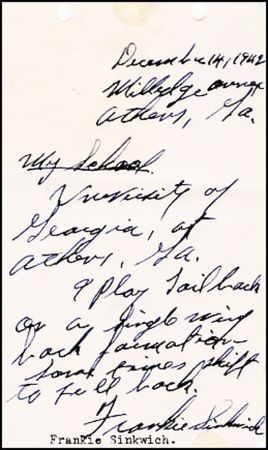 December 14, 1942
Milledge avenue
Athens, Ga.
My School.
University of
Georgia, at
Athens, Ga.
I Play Tailback
on a single wing
back formation
some times shift
to full back.
Frankie Sinkwich
Frankie Sinkwich.